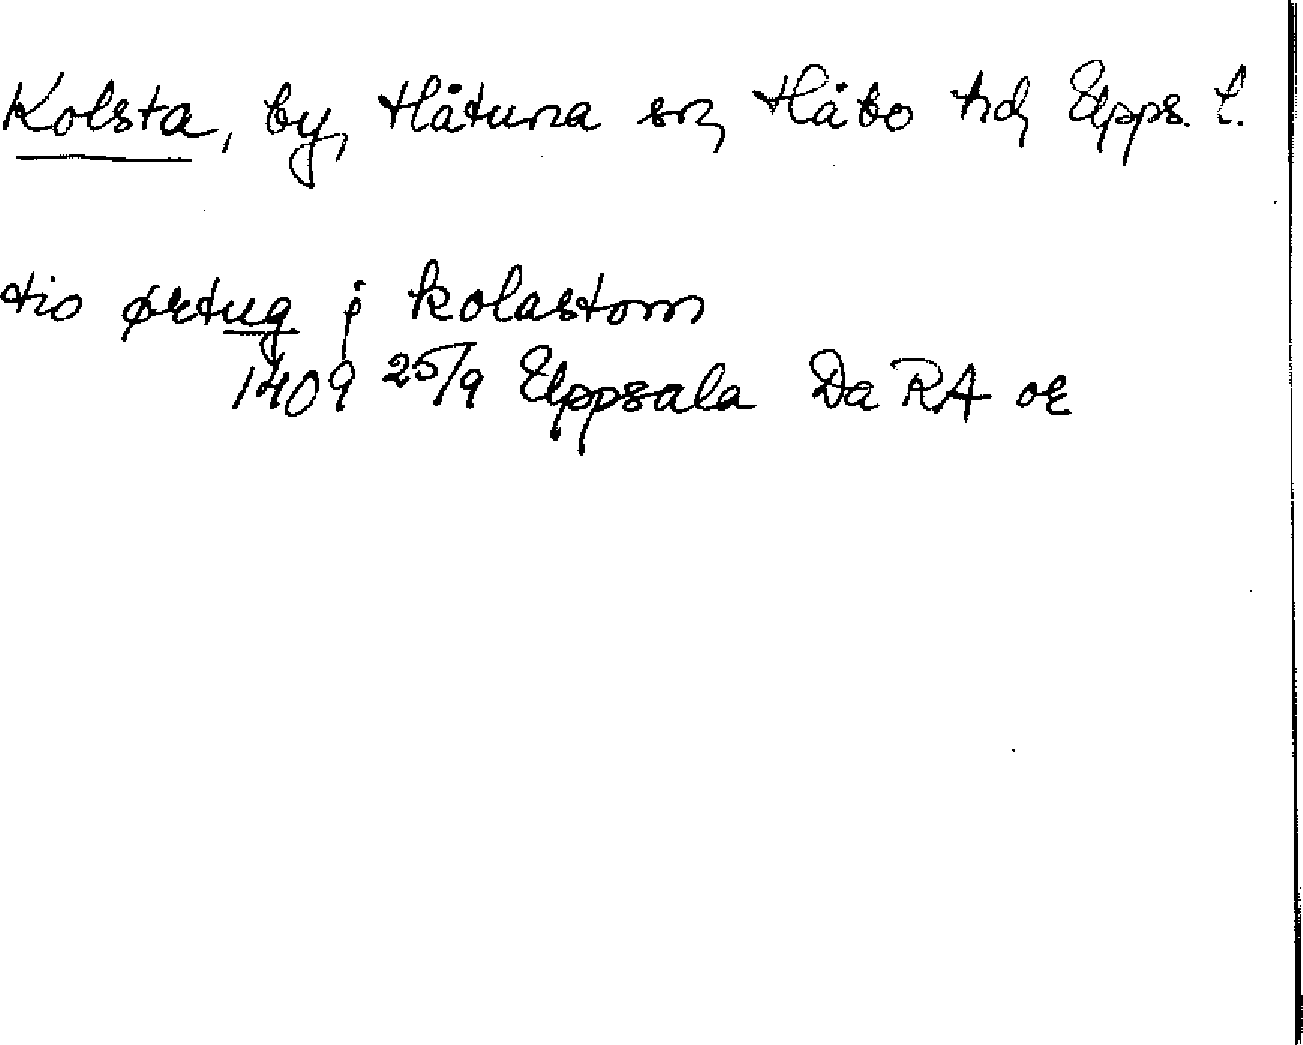 Kolsta, by, Håtuna sn, Håbo hd, Upps. l.
tio ørtug j kolastom
1409 25/9 Uppsala Da RA or